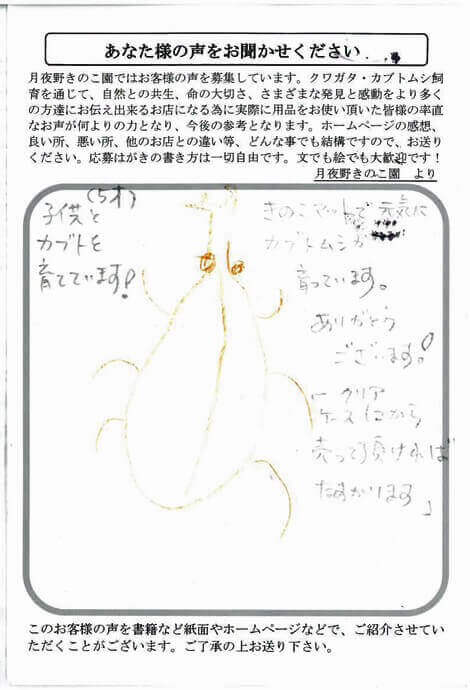 あなた様の声をお聞かせください
月夜野きのこ園ではお客様の声を募集しています。クワガタ・カブトムシ飼
育を通じて、自然との共生、命の大切さ、さまざまな発見と感動をより多く
の方達にお伝え出来るお店になる為に実際に用品をお使い頂いた皆様の率直
なお声が何よりの力となり、今後の参考となります。ホームページの感想、
良い所、悪い所、他のお店との違い等、どんな事でも結構ですので、お送り
ください。応募はがきの書き方は一切自由です。文でも絵でも大歓迎です！
月夜野きのこ園 より
(5才)
子供と
カブトを
育てています!
きのこマットで 元気に
カブトムシが
育っています。
ありがとう
ございます!
「クリア
ケース 1こから
売って頂ければ
たすかります」
このお客様の声を書籍など紙面やホームページなどで、ご紹介させてい
ただくことがございます。ご了承の上お送り下さい。